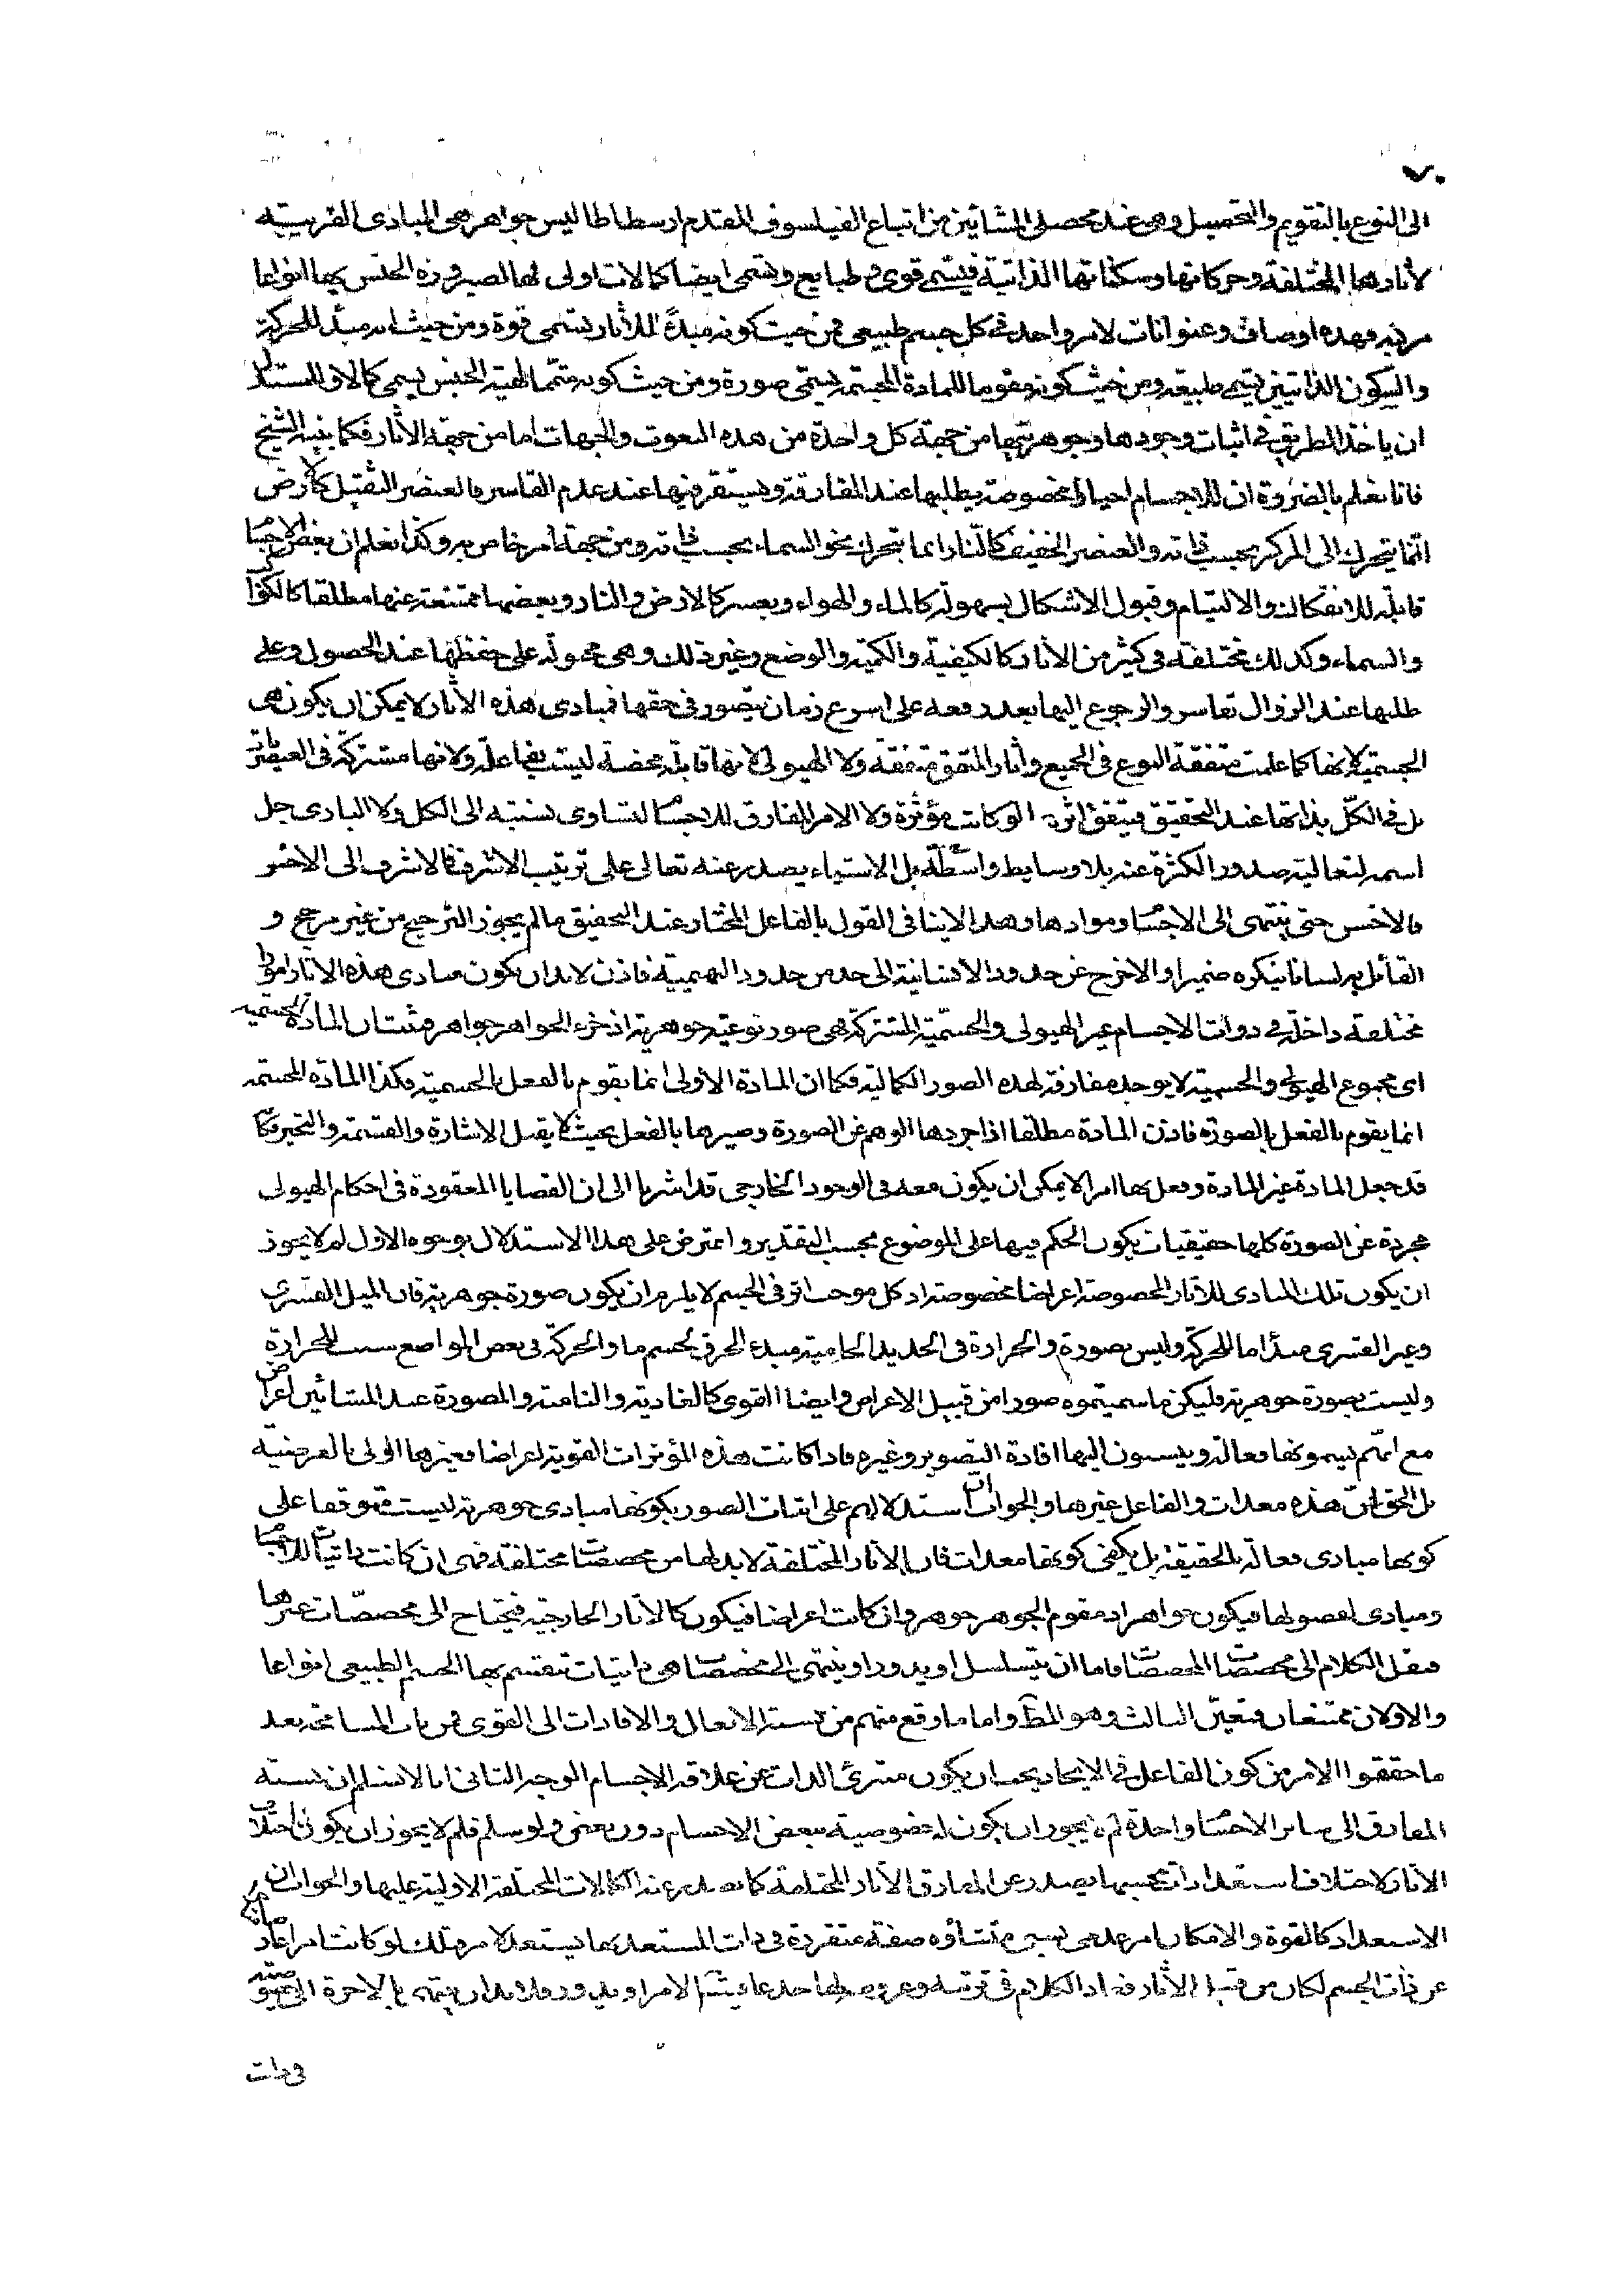 ٧٠
الى النوع بالتقويم والتحصيل وهى عند محصلى المشائين من اتباع الفيلسوف المقدم ارسطاطاليس جواهر هى المبادى القريبة
لآثارها المختلفة وحركاتها وسكناتها الذاتية فيسمى قوى و طبايع وتسمى ايضا كمالات اولى لها لصيرورة الجنس بها انواعا
مركبة وهذه اوصاف وعنوانات لامر واحد فى كل جسم طبيعى فمن حيث كونه مبدءً للآثار يسمى قوة ومن حيث انه مبدأ للحركة
والسكون الذاتيين يسمى طبيعة ومن حيث كونه مقوما للمادة المجسمة يسمى صورة ومن حيث كونه متمما لمهية الجنس يسمى كمالا و للمستدل
ان ياخذ الطريق فى اثبات وجودها وجوهريتها من جهة كل واحدة من هذه النعوت والجهات اما من جهة الآثار فكما بينه الشيخ
فانا نعلم بالضرورة ان للاجسام احيازا مخصوصة يطلبها عند المفارقة ويستقر فيها عند عدم القاسر فالعنصر الثقيل كالارض
انما يتحرك الى المركز بحسب ذاته والعنصر الخفيف كالنار انما يتحرك نحو السماء بحسب ذاته ومن جهة امر خاص به وكذا نعلم ان بعض الاجسام
قابلة للانفكاك والالتيام وقبول الاشكال بسهولة كالماء والهواء وبعسر كالارض والنار وبعضها ممتنعة عنها مطلقا كالكواكب
والسماء وكذلك مختلفة فى كثير من الآثار كالكيفية والكمية والوضع وغير ذلك وهى مجبولة على حفظها عند الحصول وعلى
طلبها عند الزوال بقاسر والرجوع اليها بعد دفعه على اسرع زمان يتصور فى حقها فمبادى هذه الآثار لا يمكن ان يكون هى
الجسمية لانها كما علمت متفقة النوع فى الجميع وآثار المتفق متفقة ولا الهيولى لانها قابلة محضة ليست بفاعلة ولانها مشتركة فى العنصريات
بل فى الكل بذاتها عند التحقيق فيتفق اثرها لو كانت مؤثرة ولا الامر المفارق للاجسام لتساوى نسبته الى الكل ولا البارى جل
اسمه لتعاليه صدور الكثرة عنه بلا وسايط واسطة بل الاشياء يصدر عنه تعالى على ترتيب الاشرف فالاشرف الى الاخس
فالاخس حتى ينتهى الى الاجسام وموادها وهذا لا ينافى القول بالفاعل المختار عند التحقيق ما لم يجوز الترجيح من غير مرجح و
القائل به لسانا ينكره ضميرا والا خرج عن حدود الانسانية الى حد من حدود البهيمية فاذن لابد ان يكون مبادى هذه الآثار امورا
مختلفة داخلة فى ذوات الاجسام غير الهيولى والجسمية المشتركة هى صور نوعية جوهرية اذ جزء الجواهر جواهر فثبت ان المادة الجسمية
اى مجموع الهيولى والجسمية لا يوجد مفارقة لهذه الصور الكمالية فكما ان المادة الاولى انما يقوم بالفعل بالجسمية فكذا المادة المجسمة
انما يقوم بالفعل بالصورة فاذن المادة مطلقا اذا جردها الوهم عن الصورة وصيرها بالفعل بحيث لا يقبل الاشارة والقسمة والتحيز فكأنه
قد جعل المادة غير المادة وفعل بها امرا لا يمكن ان يكون معه فى الوجود الخارجى قد اشرنا الى ان القضايا المعقودة فى احكام الهيولى
مجردة عن الصورة كلها حقيقيات يكون الحكم فيها على الموضوع بحسب التقدير واعترض على هذا الاستدلال بوجوه الاول لم لا يجوز
ان يكون تلك المبادى للآثار المخصوصة اعراضا مخصوصة اذ كل موجب اثر فى الجسم لا يلزم ان يكون صورة جوهرية فان الميل القسرى
وغير القسرى مبدأ ما للحركة وليس بصورة والحرارة فى الحديدة الحامية مبدء الحرق لجسم ما والحركة فى بعض المواضع سبب للحرارة
وليست بصورة جوهرية فليكن ما سميتموه صورا من قبيل الاعراض وايضا القوى كالغاذية والنامية والمصورة عند المشائين اعراض
مع انهم يسمونها فعالة وينسبون اليها افادة التصوير وغيره فاذا كانت هذه المؤثرات القوية اعراضا فغيرها اولى بالعرضية
بل الحق ان هذه معدات والفاعل غيرها والجواب ان استدلالهم على اثبات الصور بكونها مبادى جوهرية ليست موقوفا على
كونها مبادى فعالة بالحقيقة بل يكفى كونها معدات فان الآثار المختلفة لابد لها من مخصصات مختلفة فهى ان كانت ذاتيات للاجسام
ومبادى لفصولها فيكون جواهر اذ مقوم الجوهر جوهر وان كانت اعراضا فيكون كالآثار الخارجية فيحتاج الى مخصصات غيرها
فننقل الكلام الى مخصصات المخصصات فاما ان يتسلسل او يدور او ينتهى الى مخصصات هى ذاتيات تنقسم بها الجسم الطبيعى انواعا
والاولان ممتنعان فتعين الثالث وهو المط واما ما وقع منهم من نسبة الافعال والافادات الى القوى فمن باب المسامحة بعد
ما حققوا الامر من كون الفاعل فى الايجاد يجب ان يكون متبرئ الذات عن علاقة الاجسام الوجه الثانى انا لا نسلم ان نسبة
المفارق الى ساير الاجسام واحدة لم لا يجوز ان يكون له خصوصية ببعض الاجسام دون بعض ولو سلم فلم لا يجوز ان يكون اختلاف
الآثار لاختلاف استعدادات بحسبها يصدر عن المفارق الآثار المختلفة كما يصدر عنه الكمالات المختلفة الاولية عليها والجواب ان
الاستعداد كالقوة والامكان امر عدمى ليس منشأوه صفة متقررة فى ذات المستعد بها يستعد لامر وتلك لو كانت امرا
عن ذات الجسم لكان من قبيل الآثار فعاد الكلام فى ترتبه وعروضها الامر او يدور فلابد ان ينتهى بالاخرة الى
فى ذات